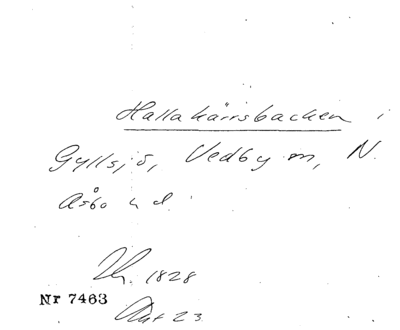 Hallakärrsbacken i
Gyllsjö, Vedby sn, N.
Åsbo hd.
1828
Nr 7463
Akt 23.